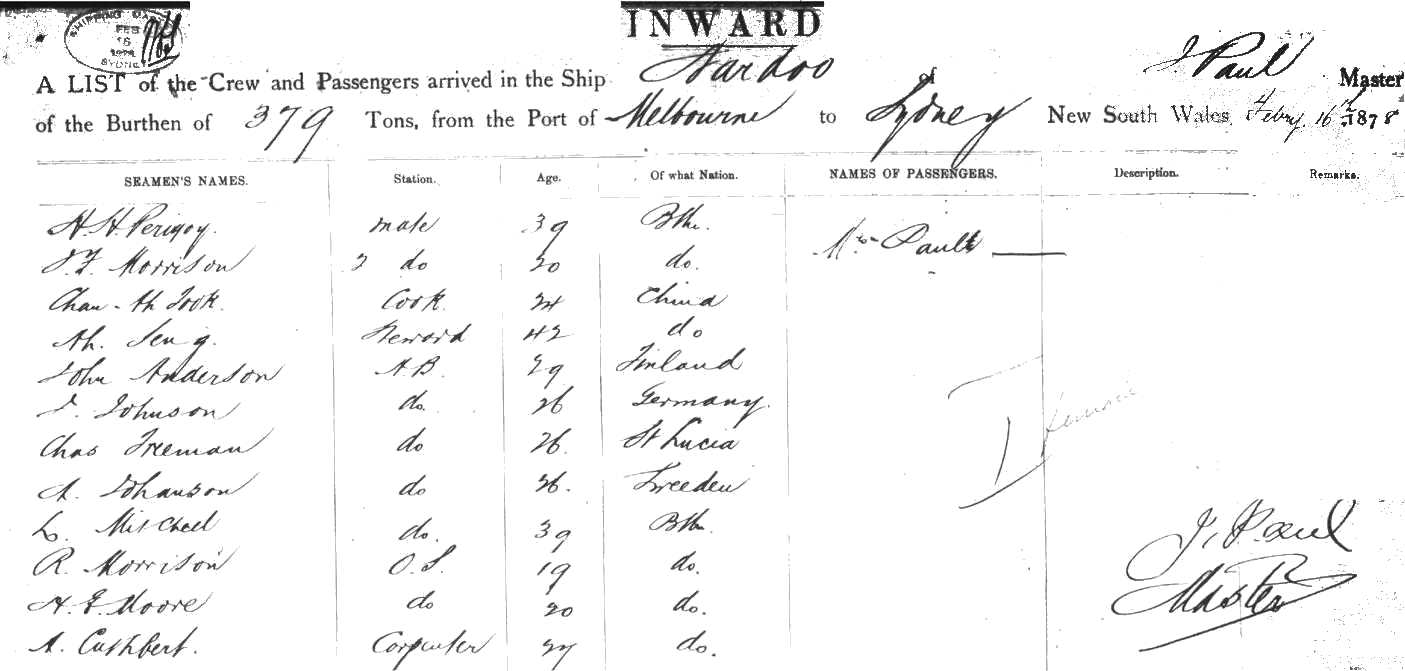 SHIPPING OFFICE
FEB
16
1878
SYDNEY
INWARD
A LIST of the Crew and Passengers arrived in the Ship Nardoo of J Paul Master
of the Burthen of 379 Tons, from the Port of Melbourne to Sydney New South Wales, Febry. 16th 1878
SEAMEN'S NAMES. Station. Age. Of what Nation. NAMES OF PASSENGERS. Description. Remarks.
H. H. Perigoy. mate 39 Bth.
Mrs Paul
J. F. Morrison 2 do 20 do.
Chau - Ah Took. Cook 24 China
Ah. Seng. Steward 42 do
John Anderson A.B. 29 Finland
J. Johnson do. 26 Germany.
Chas Freeman do 26. St Lucia
A. Johanson do 26. Sweeden
L. Mitchell do. 39 Bth
J. Paul
R. Morrison O.S. 19 do.
Master
H. E. Moore do 20 do.
A. Cuthbert. Carpenter 27 do.